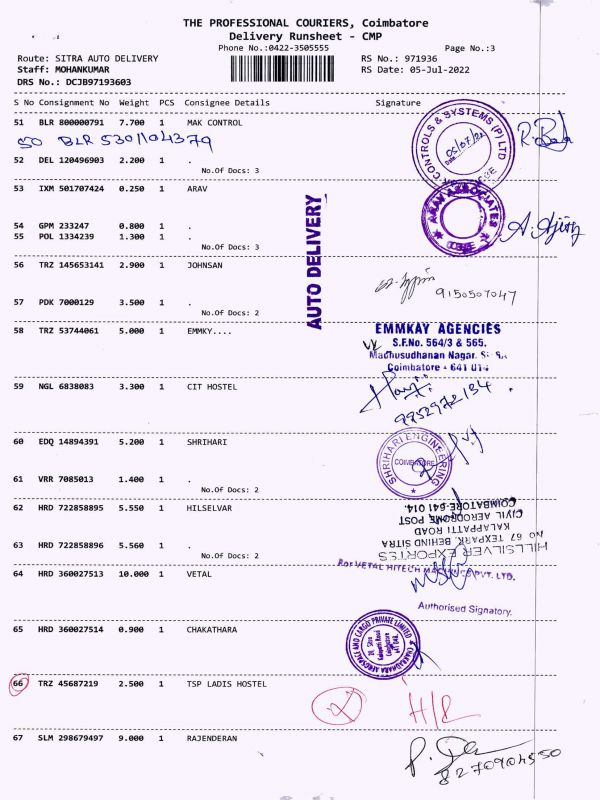 THE PROFESSIONAL COURIERS, Coimbatore
Delivery Runsheet - CMP
Phone No.:0422-3505555
Page No.:3
Route: SITRA AUTO DELIVERY
RS No.: 971936
Staff: MOHANKUMAR
RS Date: 05-Jul-2022
DRS No.: DCJB97193603
S No Consignment No Weight PCS Consignee Details Signature
51 BLR 800000791 7.700 1 MAK CONTROL
50 BLR 5301104379
CONTROLS & SYSTEMS (P) LTD
Date 05/07/22
52 DEL 120496903 2.200 1 .
No.Of Docs: 3
53 IXM 501707424 0.250 1 ARAV
ARAV ASSOCIATES
54 GPM 233247 0.800 1 .
55 POL 1334239 1.300 1 .
No.Of Docs: 3
AUTO DELIVERY
56 TRZ 145653141 2.900 1 JOHNSAN
9150507047
57 PDK 7000129 3.500 1 .
No.Of Docs: 2
58 TRZ 53744061 5.000 1 EMMKY....
EMMKAY AGENCIES
S.F.No. 564/3 & 565.
Madhusudhanan Nagar,
Coimbatore - 641 014
59 NGL 6838083 3.300 1 CIT HOSTEL
9952972134
60 EDQ 14894391 5.200 1 SHRIHARI
SHRIHARI ENGINEERING
COIMBATORE
61 VRR 7085013 1.400 1 .
No.Of Docs: 2
62 HRD 722858895 5.550 1 HILSELVAR
63 HRD 722858896 5.560 1 .
No.Of Docs: 2
HILLSILVER EXPORTES
NO 67 TEXPARK, BEHIND SITRA
KALAPPATTI ROAD
CIVIL AERODROME POST
COIMBATORE-641 014.
64 HRD 360027513 10.000 1 VETAL
For VETAL HITECH MACHINES PVT. LTD.
Authorised Signatory.
65 HRD 360027514 0.900 1 CHAKATHARA
CHAKRADHARA AEROSPACE AND CARGO PRIVATE LIMITED
66 TRZ 45687219 2.500 1 TSP LADIS HOSTEL
H/R
67 SLM 298679497 9.000 1 RAJENDERAN
8270904550